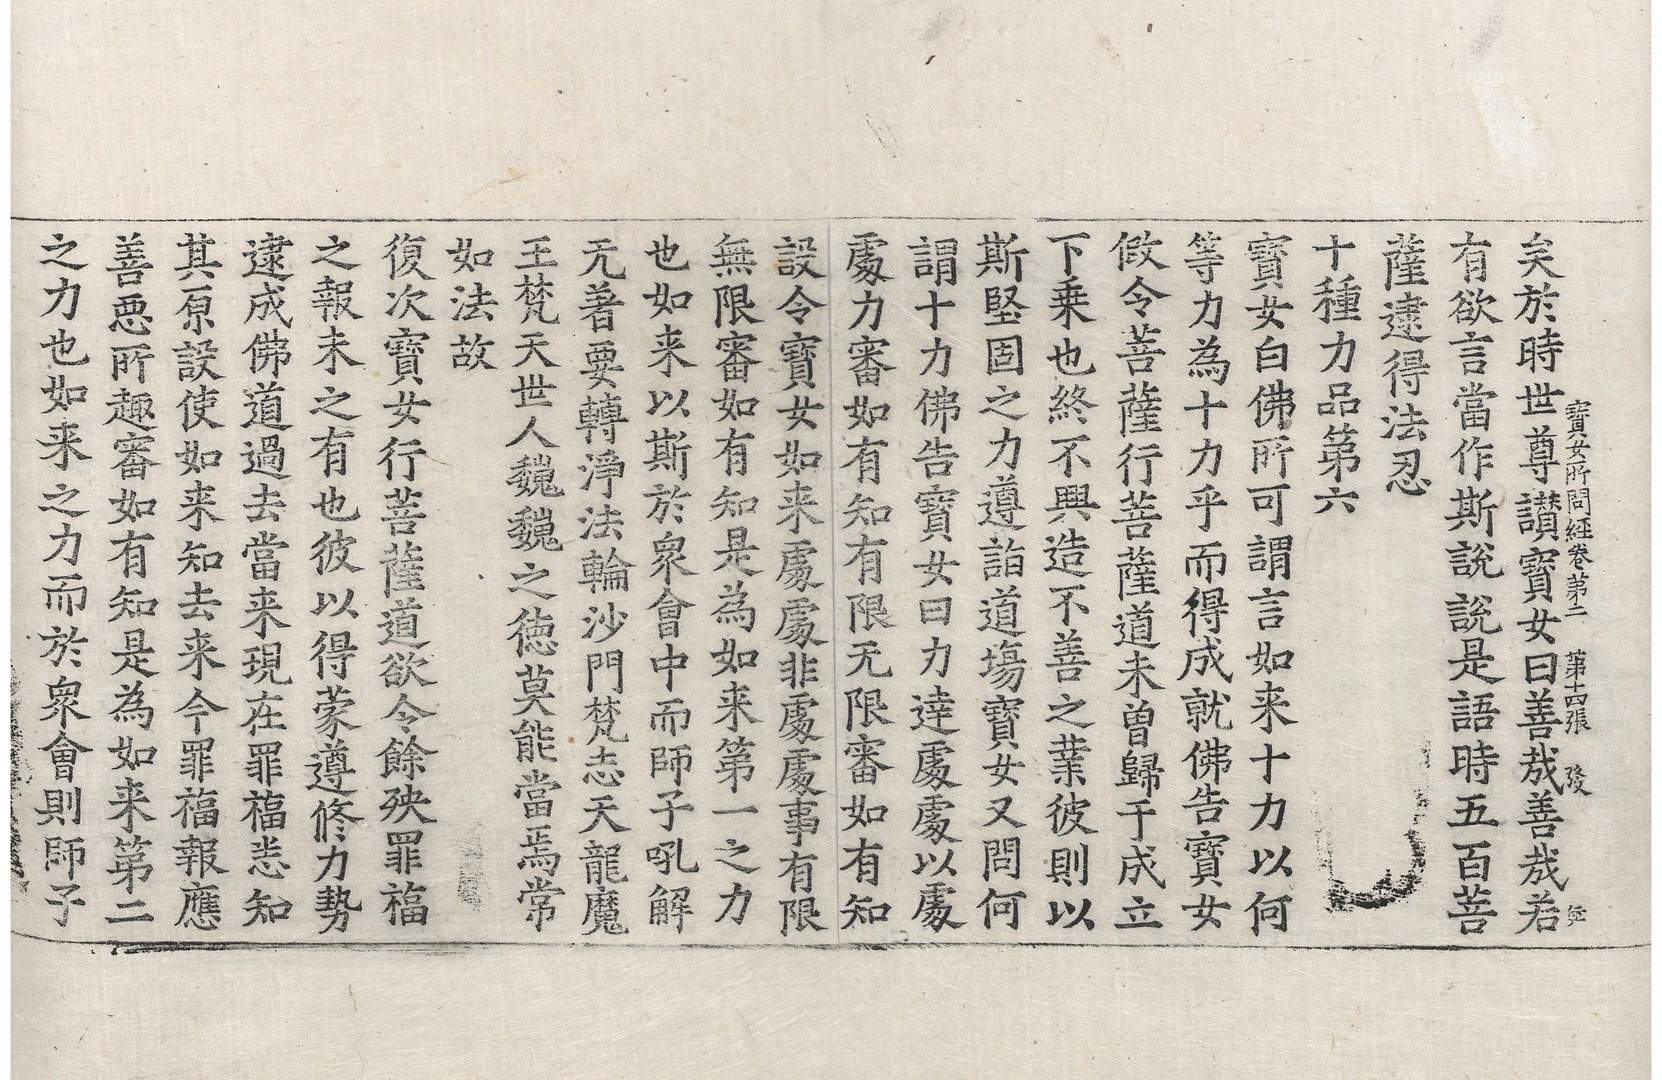 寶女所問經卷第二　第十四張
矣於時世尊讃寶女曰善哉善哉若
有欲言當作斯說說是語時五百菩
薩逮得法忍
十種力品第六
寶女白佛所可謂言如来十力以何
等力為十力乎而得成就佛告寶女
假令菩薩行菩薩道未曾歸于成立
下乗也終不興造不善之業彼則以
斯堅固之力遵詣道塲寶女又問何
謂十力佛告寶女曰力逹處處以處
處力審如有知有限无限審如有知
設令寶女如来處處非處處事有限
無限審如有知是為如来第一之力
也如来以斯於衆會中而師子吼解
无著要轉淨法輪沙門梵志天龍魔
王梵天世人巍巍之徳莫能當焉常
如法故
復次寶女行菩薩道欲令餘殃罪福
之報未之有也彼以得蒙遵修力勢
逮成佛道過去當来現在罪福悉知
其原設使如来知去来今罪福報應
善惡所趣審如有知是為如来第二
之力也如来之力而於衆會則師子